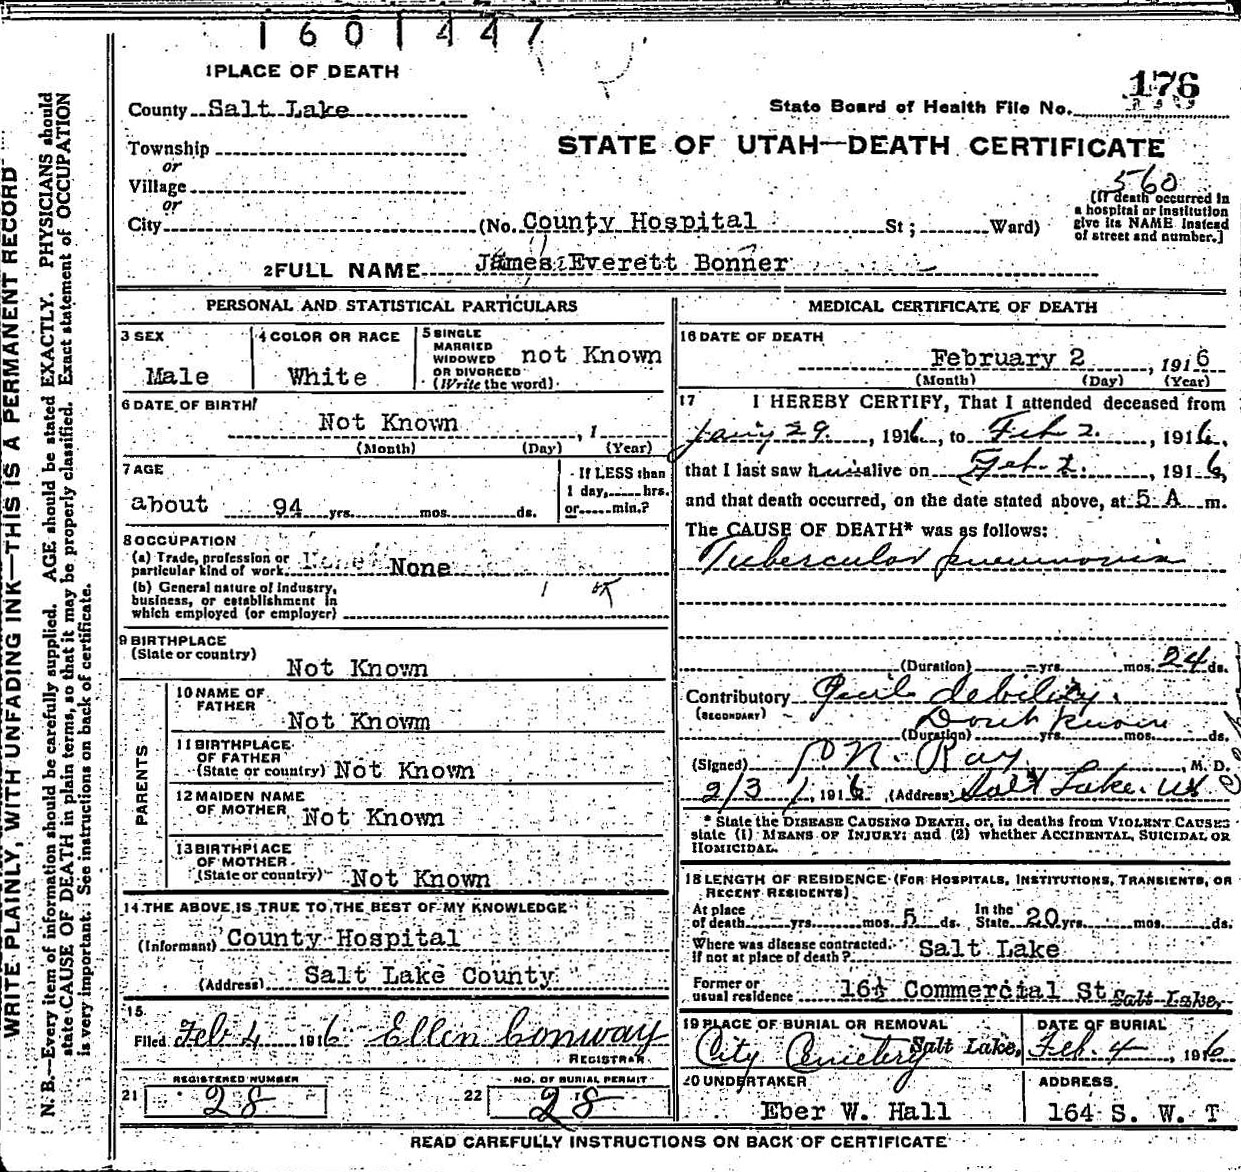 1601447
1 PLACE OF DEATH
176
County Salt Lake
State Board of Health File No.
Township
STATE OF UTAH—DEATH CERTIFICATE
or
Village
560
or
City (No. County Hospital St; Ward)
(If death occurred in
a hospital or institution
give its NAME instead
of street and number.]
2 FULL NAME James Everett Bonner
PERSONAL AND STATISTICAL PARTICULARS
3 SEX
Male
4 COLOR OR RACE
White
5 SINGLE
MARRIED
WIDOWED
OR DIVORCED
(Write the word)
not Known
6 DATE OF BIRTH
Not Known , 1
(Month) (Day) (Year)
7 AGE
about 94 yrs. mos. ds.
If LESS than
1 day, hrs.
or min.?
8 OCCUPATION
(a) Trade, profession or
particular kind of work None
(b) General nature of industry,
business, or establishment in
which employed (or employer)
9 BIRTHPLACE
(State or country)
Not Known
PARENTS
10 NAME OF
FATHER
Not Knowm
11 BIRTHPLACE
OF FATHER
(State or country) Not Known
12 MAIDEN NAME
OF MOTHER Not Known
13 BIRTHPLACE
OF MOTHER
(State or country) Not Known
14 THE ABOVE IS TRUE TO THE BEST OF MY KNOWLEDGE
(Informant) County Hospital
(Address) Salt Lake County
15
Filed Feb 4 1916 Ellen Conway
REGISTRAR
21 REGISTERED NUMBER
28
22 NO. OF BURIAL PERMIT
28
MEDICAL CERTIFICATE OF DEATH
16 DATE OF DEATH
February 2 , 1916
(Month) (Day) (Year)
17 I HEREBY CERTIFY, That I attended deceased from
Jany 29. , 1916, to Feb 2. , 1916,
that I last saw him alive on Feb. 2. , 1916,
and that death occurred, on the date stated above, at 5 A m.
The CAUSE OF DEATH* was as follows:
Tubercular pneumonia
(Duration) yrs. mos. 24 ds.
Contributory Genl debility.
(SECONDARY) Dont know
(Duration) yrs. mos. ds.
(Signed) Ray , M. D.
2/3 , 1916 (Address) Salt Lake. Ut
* State the DISEASE CAUSING DEATH, or, in deaths from VIOLENT CAUSES
state (1) MEANS OF INJURY; and (2) whether ACCIDENTAL, SUICIDAL OR
HOMICIDAL.
18 LENGTH OF RESIDENCE (FOR HOSPITALS, INSTITUTIONS, TRANSIENTS, OR
RECENT RESIDENTS)
At place
of death yrs. mos. 5 ds. In the
State 20 yrs. mos. ds.
Where was disease contracted.
If not at place of death? Salt Lake
Former or
usual residence 16½ Commercial St Salt Lake,
19 PLACE OF BURIAL OR REMOVAL
City Cemetery Salt Lake,
DATE OF BURIAL
Feb. 4 , 1916
20 UNDERTAKER
Eber W. Hall
ADDRESS
164 S. W. T
READ CAREFULLY INSTRUCTIONS ON BACK OF CERTIFICATE
WRITE PLAINLY, WITH UNFADING INK—THIS IS A PERMANENT RECORD
N. B.—Every item of information should be carefully supplied. AGE should be stated EXACTLY. PHYSICIANS should
state CAUSE OF DEATH in plain terms, so that it may be properly classified. Exact statement of OCCUPATION
is very important. See instructions on back of certificate.